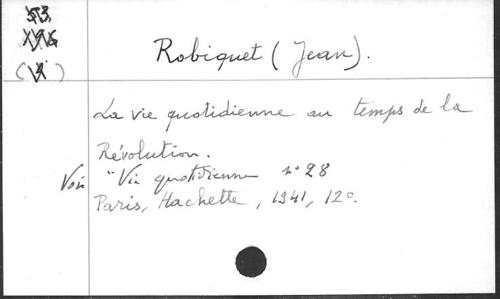 Robiquet (Jean).
La vie quotidienne au temps de la
Révolution.
Voir "Vie quotidienne n° 28
Paris, Hachette, 1941, 12°.